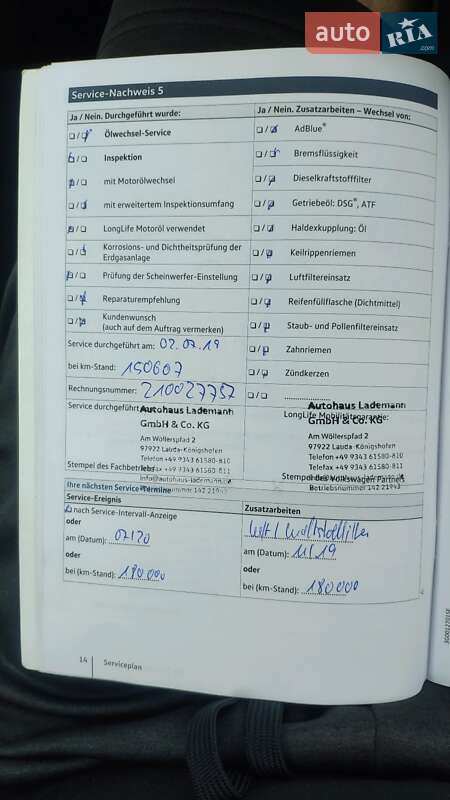 auto RIA.com
Service-Nachweis 5
Ja / Nein. Durchgeführt wurde:
Ölwechsel-Service
Inspektion
mit Motorölwechsel
mit erweitertem Inspektionsumfang
LongLife Motoröl verwendet
Korrosions- und Dichtheitsprüfung der
Erdgasanlage
Prüfung der Scheinwerfer-Einstellung
Reparaturempfehlung
Kundenwunsch
(auch auf dem Auftrag vermerken)
Service durchgeführt am: 02.07.19
bei km-Stand: 150607
Rechnungsnummer: 210027757
Service durchgeführt
Autohaus Lademann
GmbH & Co. KG
Am Wöllerspfad 2
97922 Lauda-Königshofen
Telefon +49 9343 61580-810
Telefax +49 9343 61580-811
info@autohaus-lademann.de
Betriebsnummer 142 21943
Stempel des Fachbetriebs
Ja / Nein. Zusatzarbeiten – Wechsel von:
AdBlue®
Bremsflüssigkeit
Dieselkraftstofffilter
Getriebeöl: DSG®, ATF
Haldexkupplung: Öl
Keilrippenriemen
Luftfiltereinsatz
Reifenfüllflasche (Dichtmittel)
Staub- und Pollenfiltereinsatz
Zahnriemen
Zündkerzen
Autohaus Lademann
LongLife Mobilitätsgarantie:
GmbH & Co. KG
Am Wöllerspfad 2
97922 Lauda-Königshofen
Telefon +49 9343 61580-810
Telefax +49 9343 61580-811
Stempel des Volkswagen Partners
Betriebsnummer 142 21943
Ihre nächsten Service-Termine
Service-Ereignis
nach Service-Intervall-Anzeige
oder
am (Datum): 07/20
oder
bei (km-Stand): 180000
Zusatzarbeiten
am (Datum): 11/19
oder
bei (km-Stand): 180000
14 Serviceplan